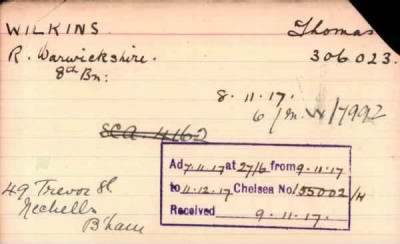 WILKINS. Thomas
R. Warwickshire. 306023.
8th Bn:
8.11.17.
6/M.W/7992
SCA 4160
Ad 7.11.17 at 27/6 from 9.11.17
to 11.12.17 Chelsea No 155002/H
Received 9.11.17.
49 Trevor St
Nechells
B'ham